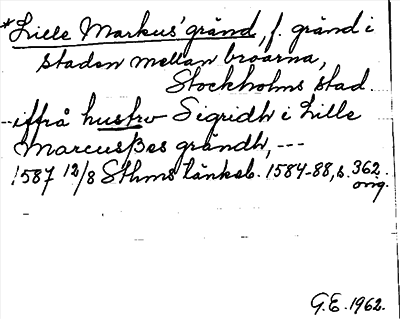 *Lille Markus' gränd, f. gränd i
staden mellan broarna,
Stockholms stad.
--iffrå hustrv Sigridh i Lille
Marcusßes grändh, ---
1587 12/8 Sthms tänkeb. 1584-88, s. 362.
orig.
G.E. 1962.